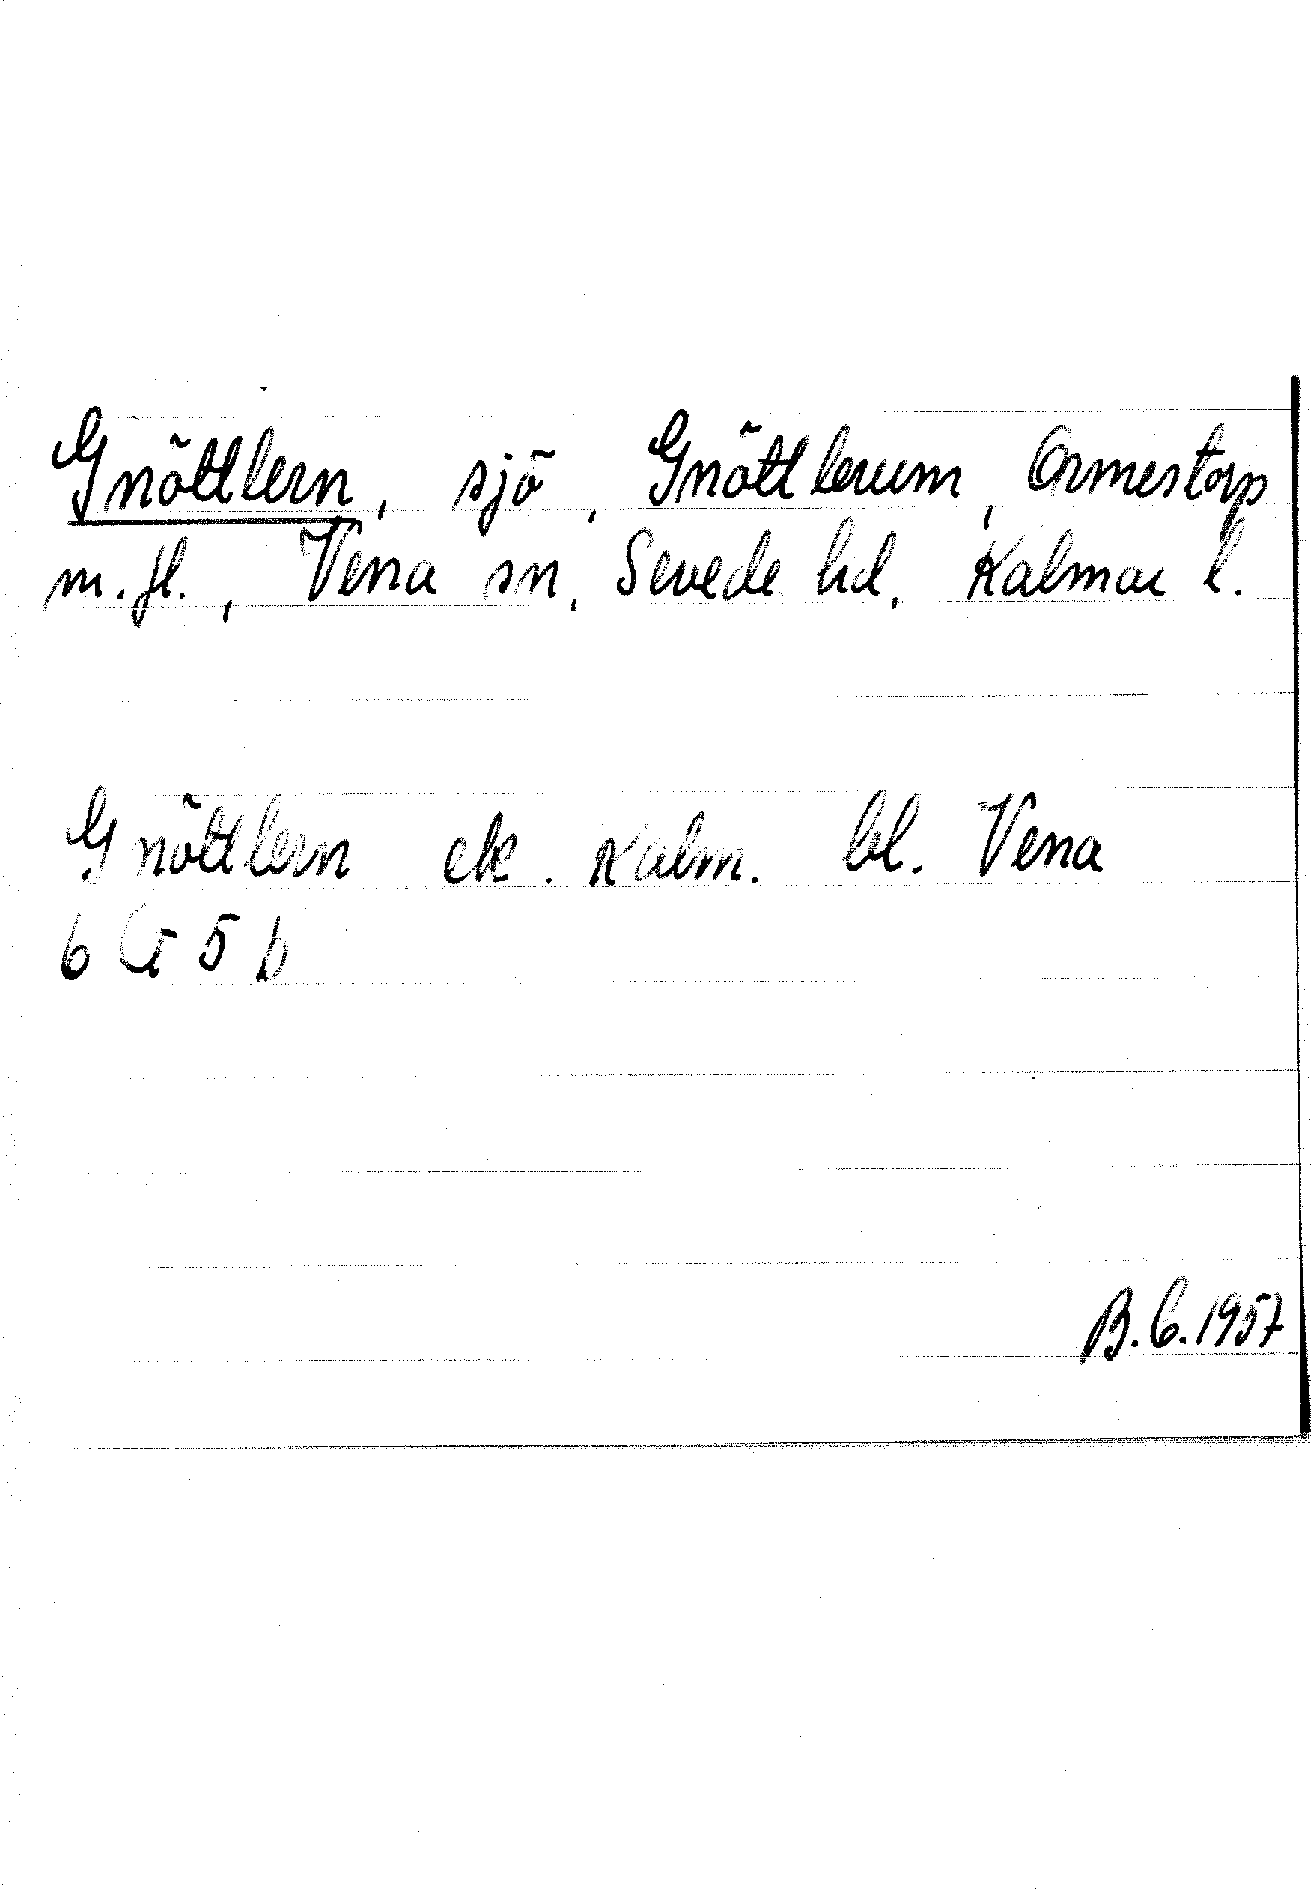 Gnöttlern, sjö, Gnöttlerum, Ormestorp
m.fl., Vena sn, Sevede hd, Kalmar l.
Gnöttlern ek. Kalm. bl. Vena
6 G 5 b
B.G.1957